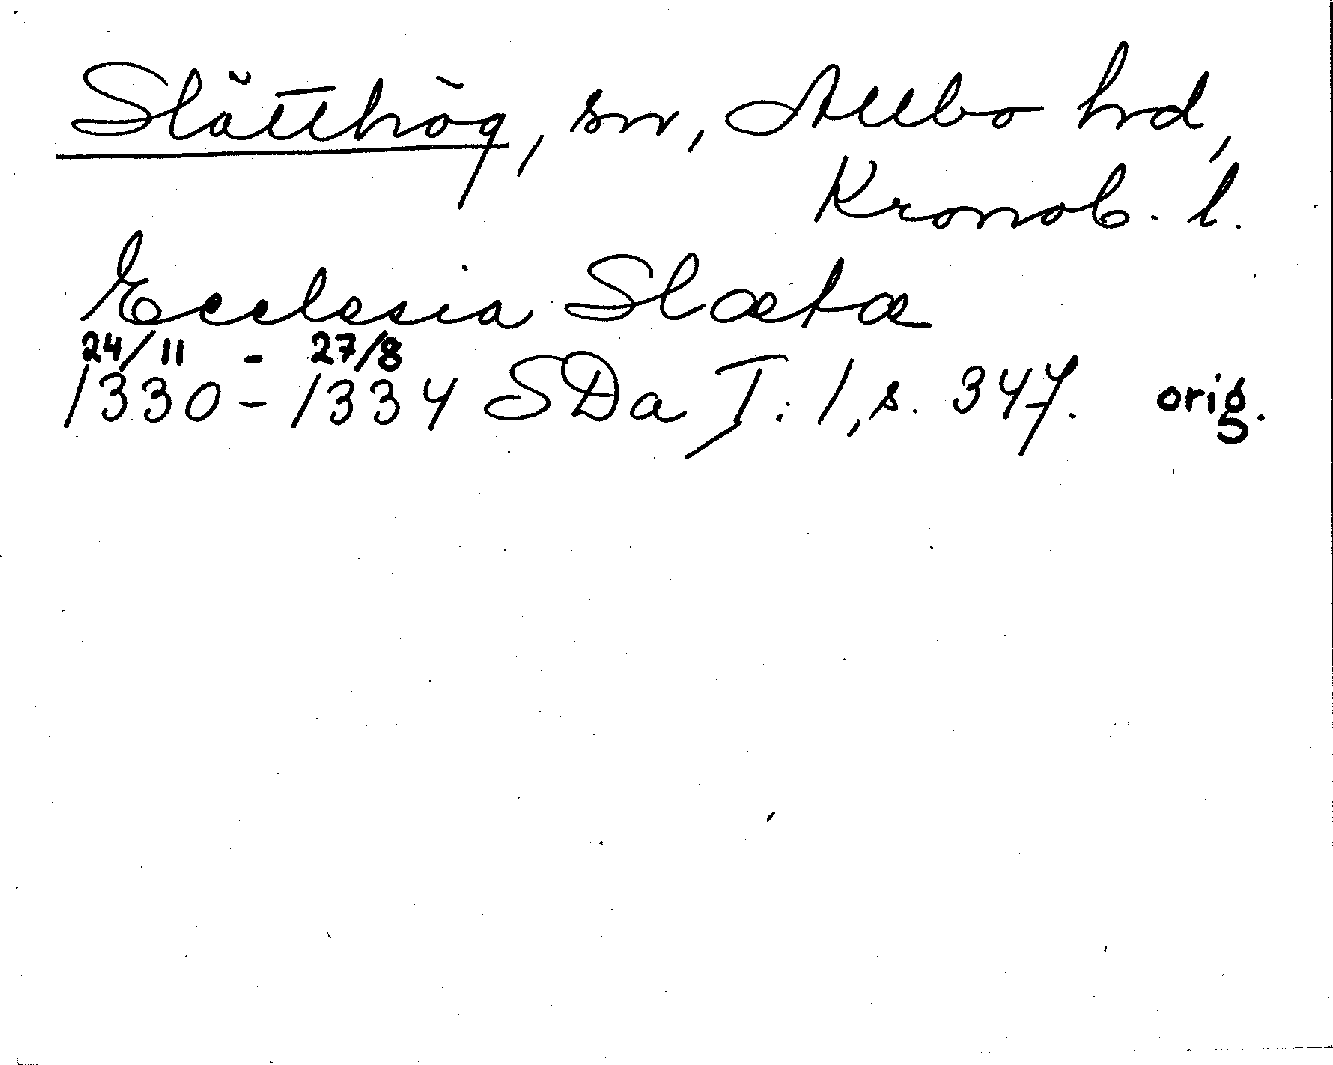 Slätthög, sn, Allbo hd,
Kronob. l.
Ecclesia Slætæ
24/11 - 27/8
1330-1334 SDa T. 1, s. 347. orig.